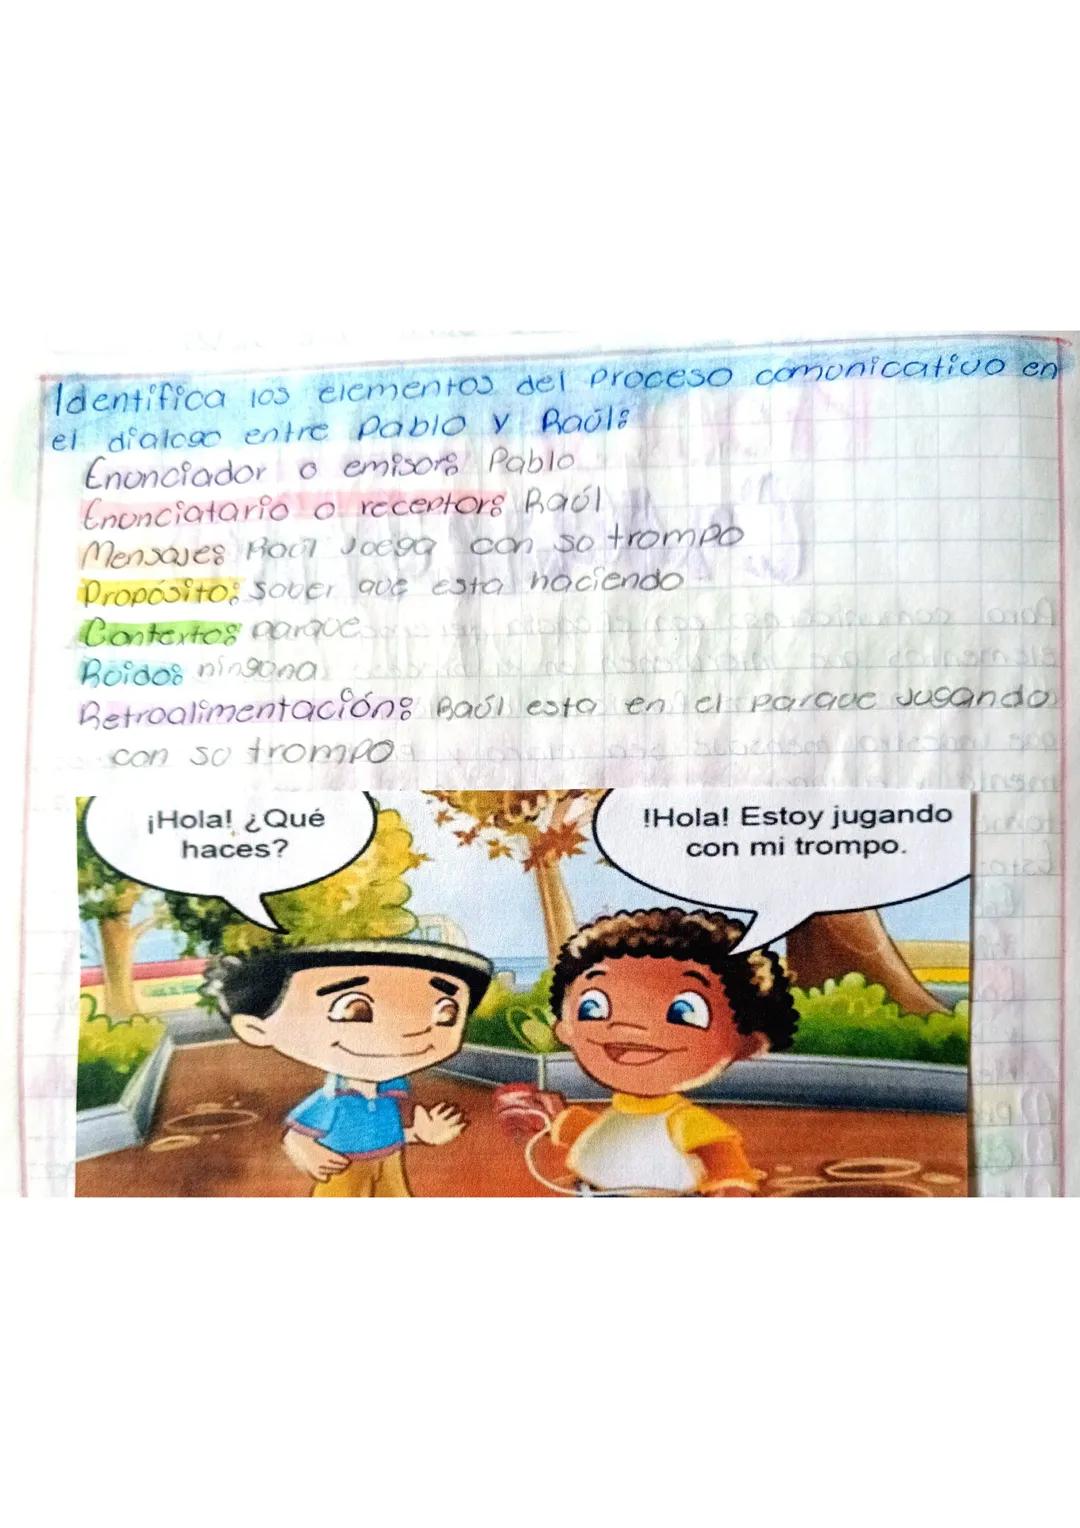 Identifica los elementos del proceso comunicativo en
el dialogo entre Pablo y Raúl:
Enunciador o emisor: Pablo
Enunciatario o receptor: Raúl
Mensaje: Raúl Juega con su trompo
Propósito: saber que esta haciendo
Contexto: parque
Ruido: ninguna
Retroalimentación: Raúl esta en el parque Jugando
con su trompo
¡Hola! ¿Qué
haces?
!Hola! Estoy jugando
con mi trompo.